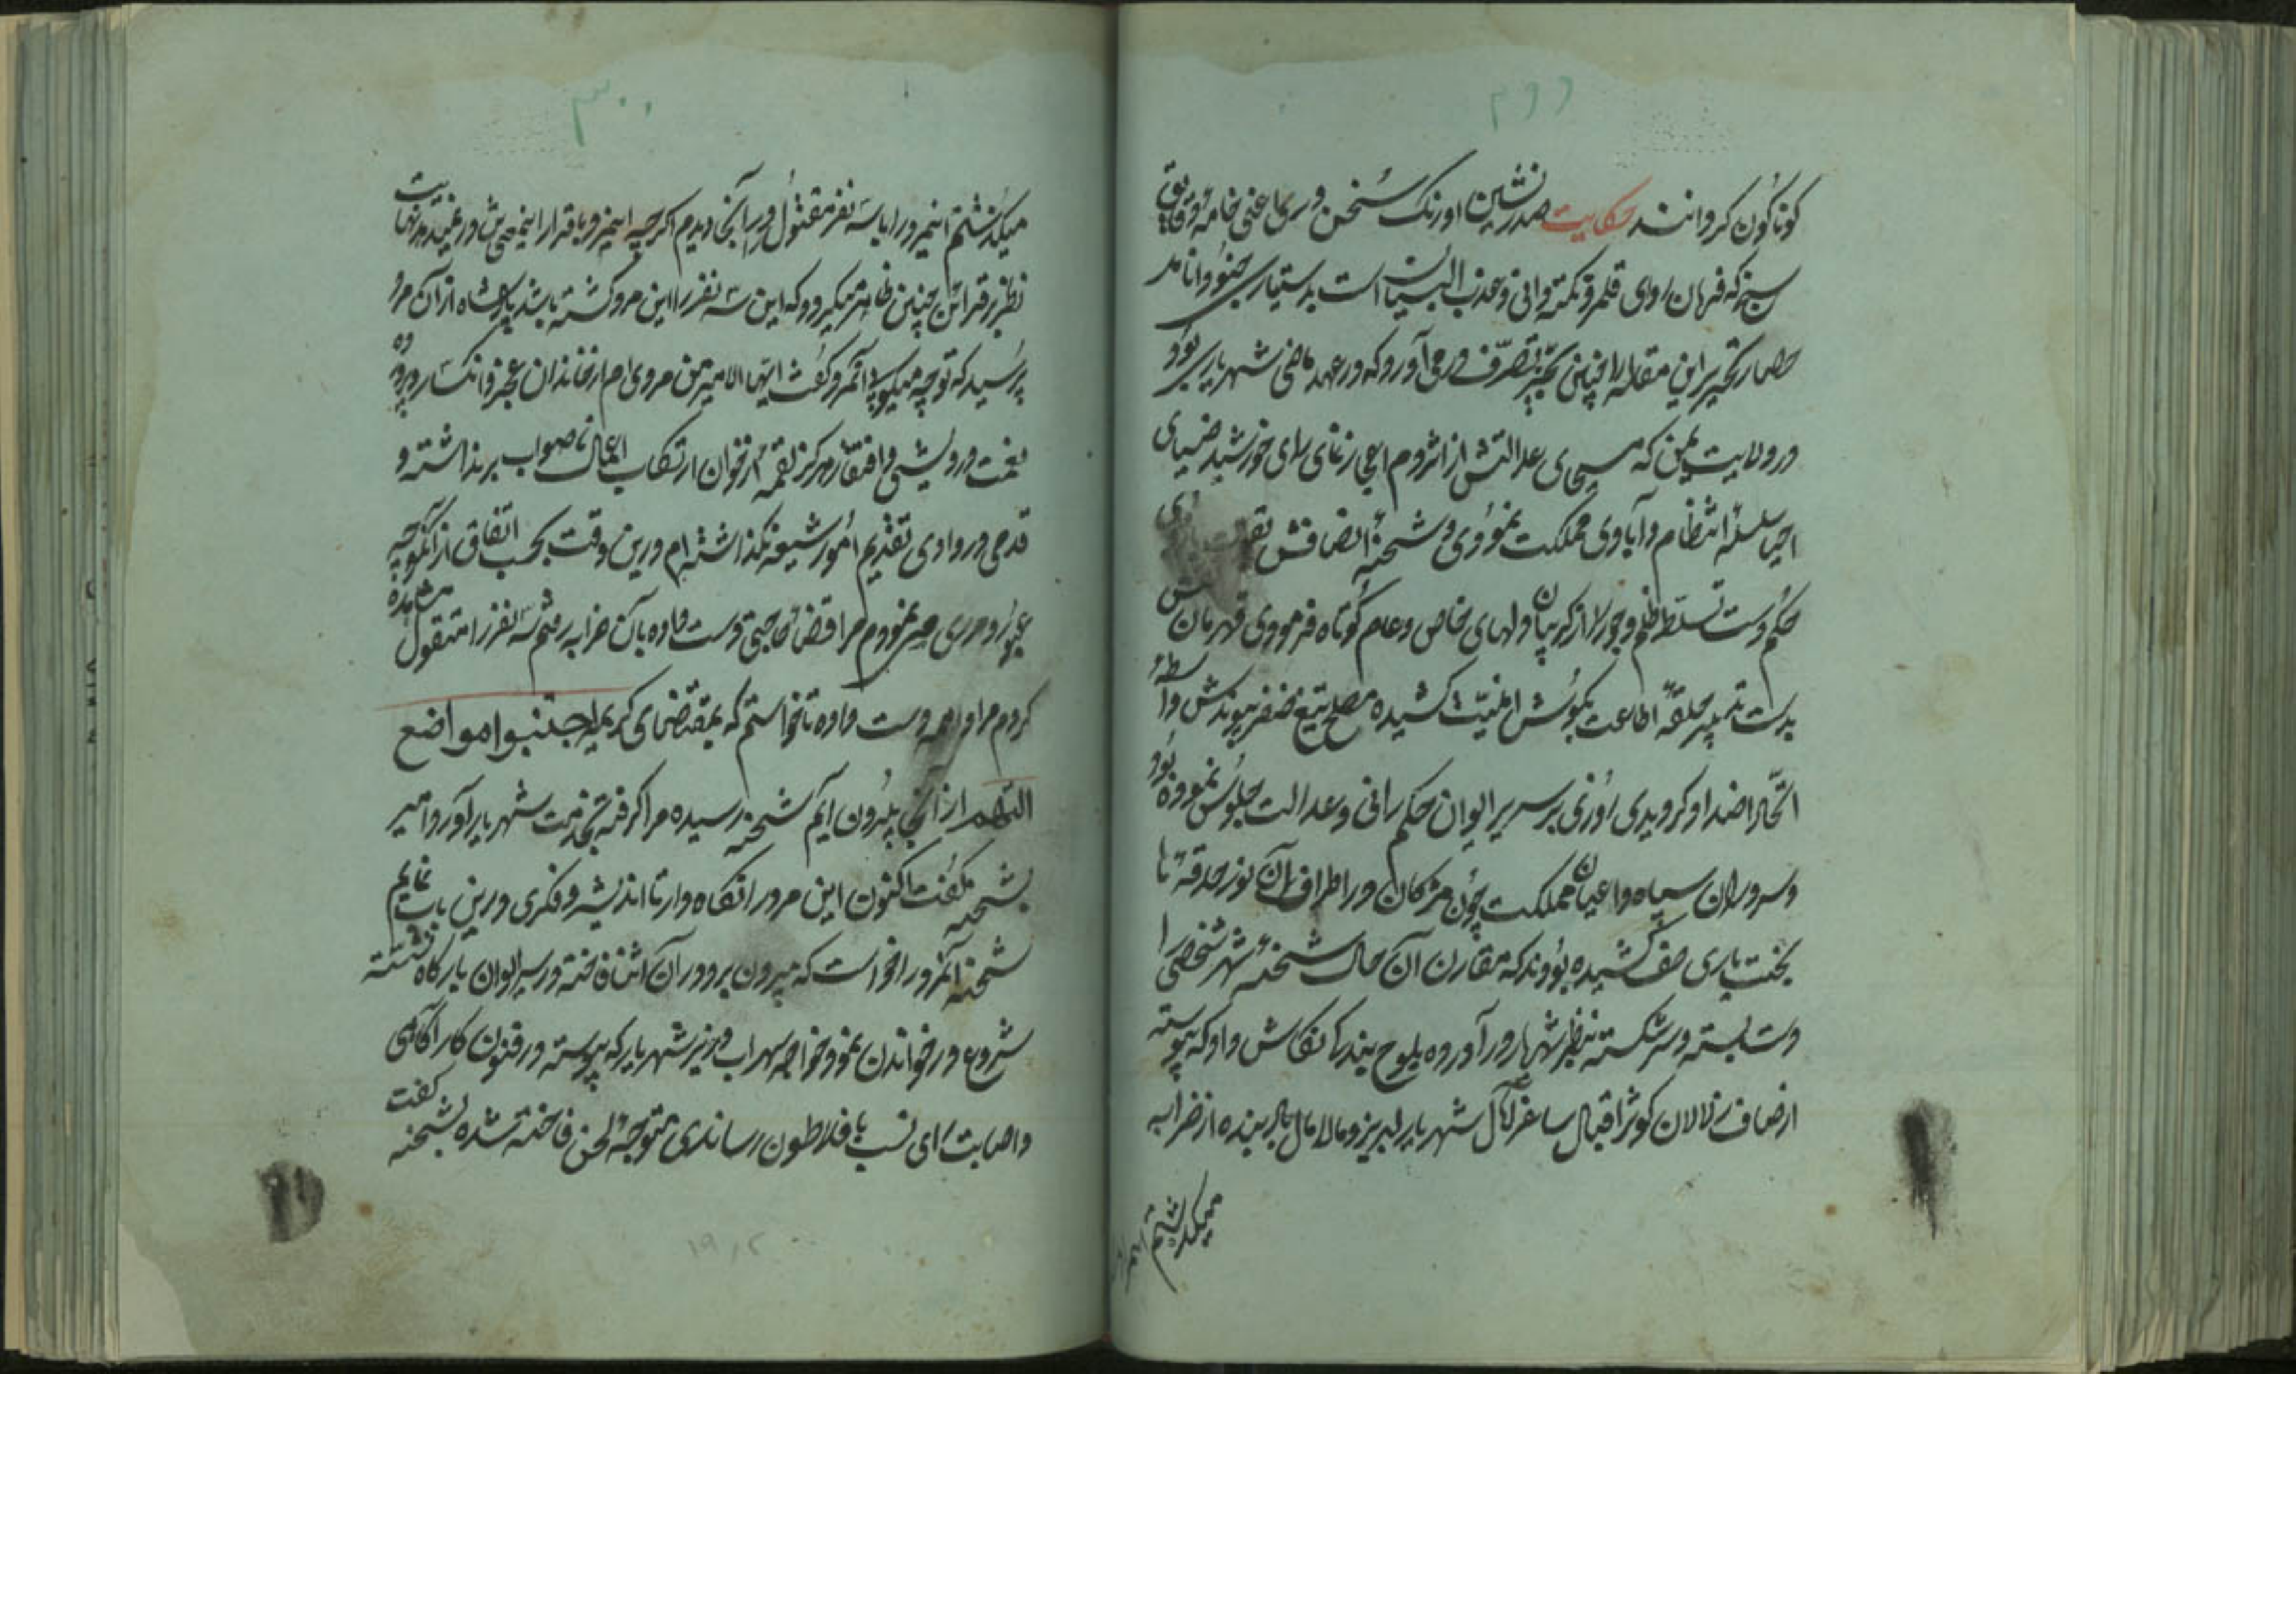 ۲۹۹
کوناکون کردانند حکایت صدرنشین اورنک سخن وری اعنی خامه دقایق
سنج که فرمان روای قلمرو نکته دانی و عذب البیان است بدستیاری
حصار تحریر این مقاله را چنین بحیز تصرف درمی آورد که در عهد ماضی شهریاری بود
در ولایت یمن که مسیحای عدالتش از اثر دم اعجاز نمای رای خورشید ضیای
احیا سلسلهٔ انتظام و آبادی مملکت نمودی و شحنهٔ انصافش
حکم دست تسلط ظلم و جور را از کریبان دلهای خاص و عام کوتاه فرمودی قهرمان
بدست تدبیر حلقهٔ اطاعت بکوش امنیت کشیده مصلح تیغ ظفر پیوندش واسطهٔ
اتحاد اضداد کردیدی روزی بر سریر ایوان حکم رانی و عدالت جلوس نموده بود
و سروران سپاه و اعیان مملکت چون مژکان در اطراف آن نور حدقهٔ
بخت یاری صف کشیده بودند که مقارن آن حال شحنهٔ شهر شخصی را
دست بسته و سر شکسته بنظر شهریار درآورده بلوح بندکی نکاش داد که پیوسته
از صاف زلالان کوثر اقبال ساغر آمال شهریار لبریز و مالامال باد بنده از خرابه
میکذشتم
۳۰۰
میکذشتم اینمرد را با سه نفر مقتول در آنجا دیدم اکرچه اینمرد باقرار اینمعنی
نظر بقرائن چنین ظاهر میکردد که این سه نفر را این مرد کشته باشد پادشاه از آن مرد
پرسید که تو چه میکویی آنمرد کفت ایها الامیر من مردی ام از خاندان عجز و انکسار و پروردهٔ
نعمت درویشی و افتقار هرکز لقمهٔ از خوان ارتکاب اعمال ناصواب برنداشته و
قدمی در وادی تقدیم امور شنیعه نکذاشته ام درین وقت بحسب اتفاق از آنکوچه
عبور و مروری می نمودم مرا قضا حاجتی دست داده بآن خرابه رفتم سه نفر را مقتول مشاهده
کردم مرا واهمه دست داده تا خواستم که بمقتضای کریمهٔ اجتنبوا مواضع
التهم از آنجا بیرون آیم شحنه رسیده مرا کرفته بخدمت شهریار آورد امیر
بشحنه کفت اکنون این مرد را نکاه دار تا اندیشه و فکری درین باب نمایم
شحنه آنمرد را خواست که بیرون برد در آن اثنا فاخته در سر ایوان بارکاه نشسته
شروع در خواندن نمود خواجه سهراب وزیر شهریار که پیوسته در فنون کار آکاهی
و اصابت رای نسب بافلاطون رساندی متوجه لحن فاخته شده بشحنه کفت